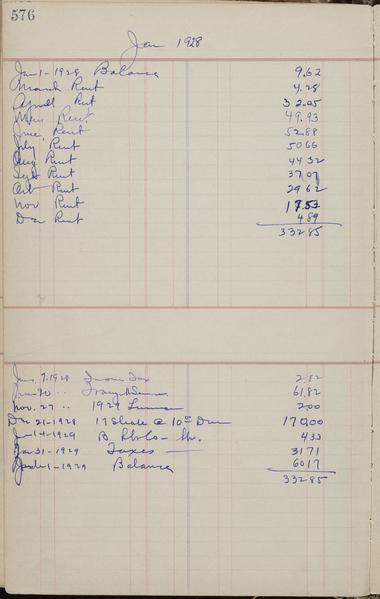 576
Jan 1928
Jan 1 - 1928 Balance 9.62
March Rent 4.28
Aprill Rent 32.05
May Rent 49.93
June, Rent 52.88
July Rent 50 66
Aug Rent 44 32
Sept Rent 37.07
Oct Rent 29 62
Nov Rent 17.53
Dec Rent 4 89
332 85
June 7-1928 Tax 2.82
61.82
Nov. 27 " 1929 2 00
Dec 21-1928 17 @ 10 170 00
Jan 14-1929 4 33
31-1929 Taxes 31 71
1-1929 Balance 60 17
332 85